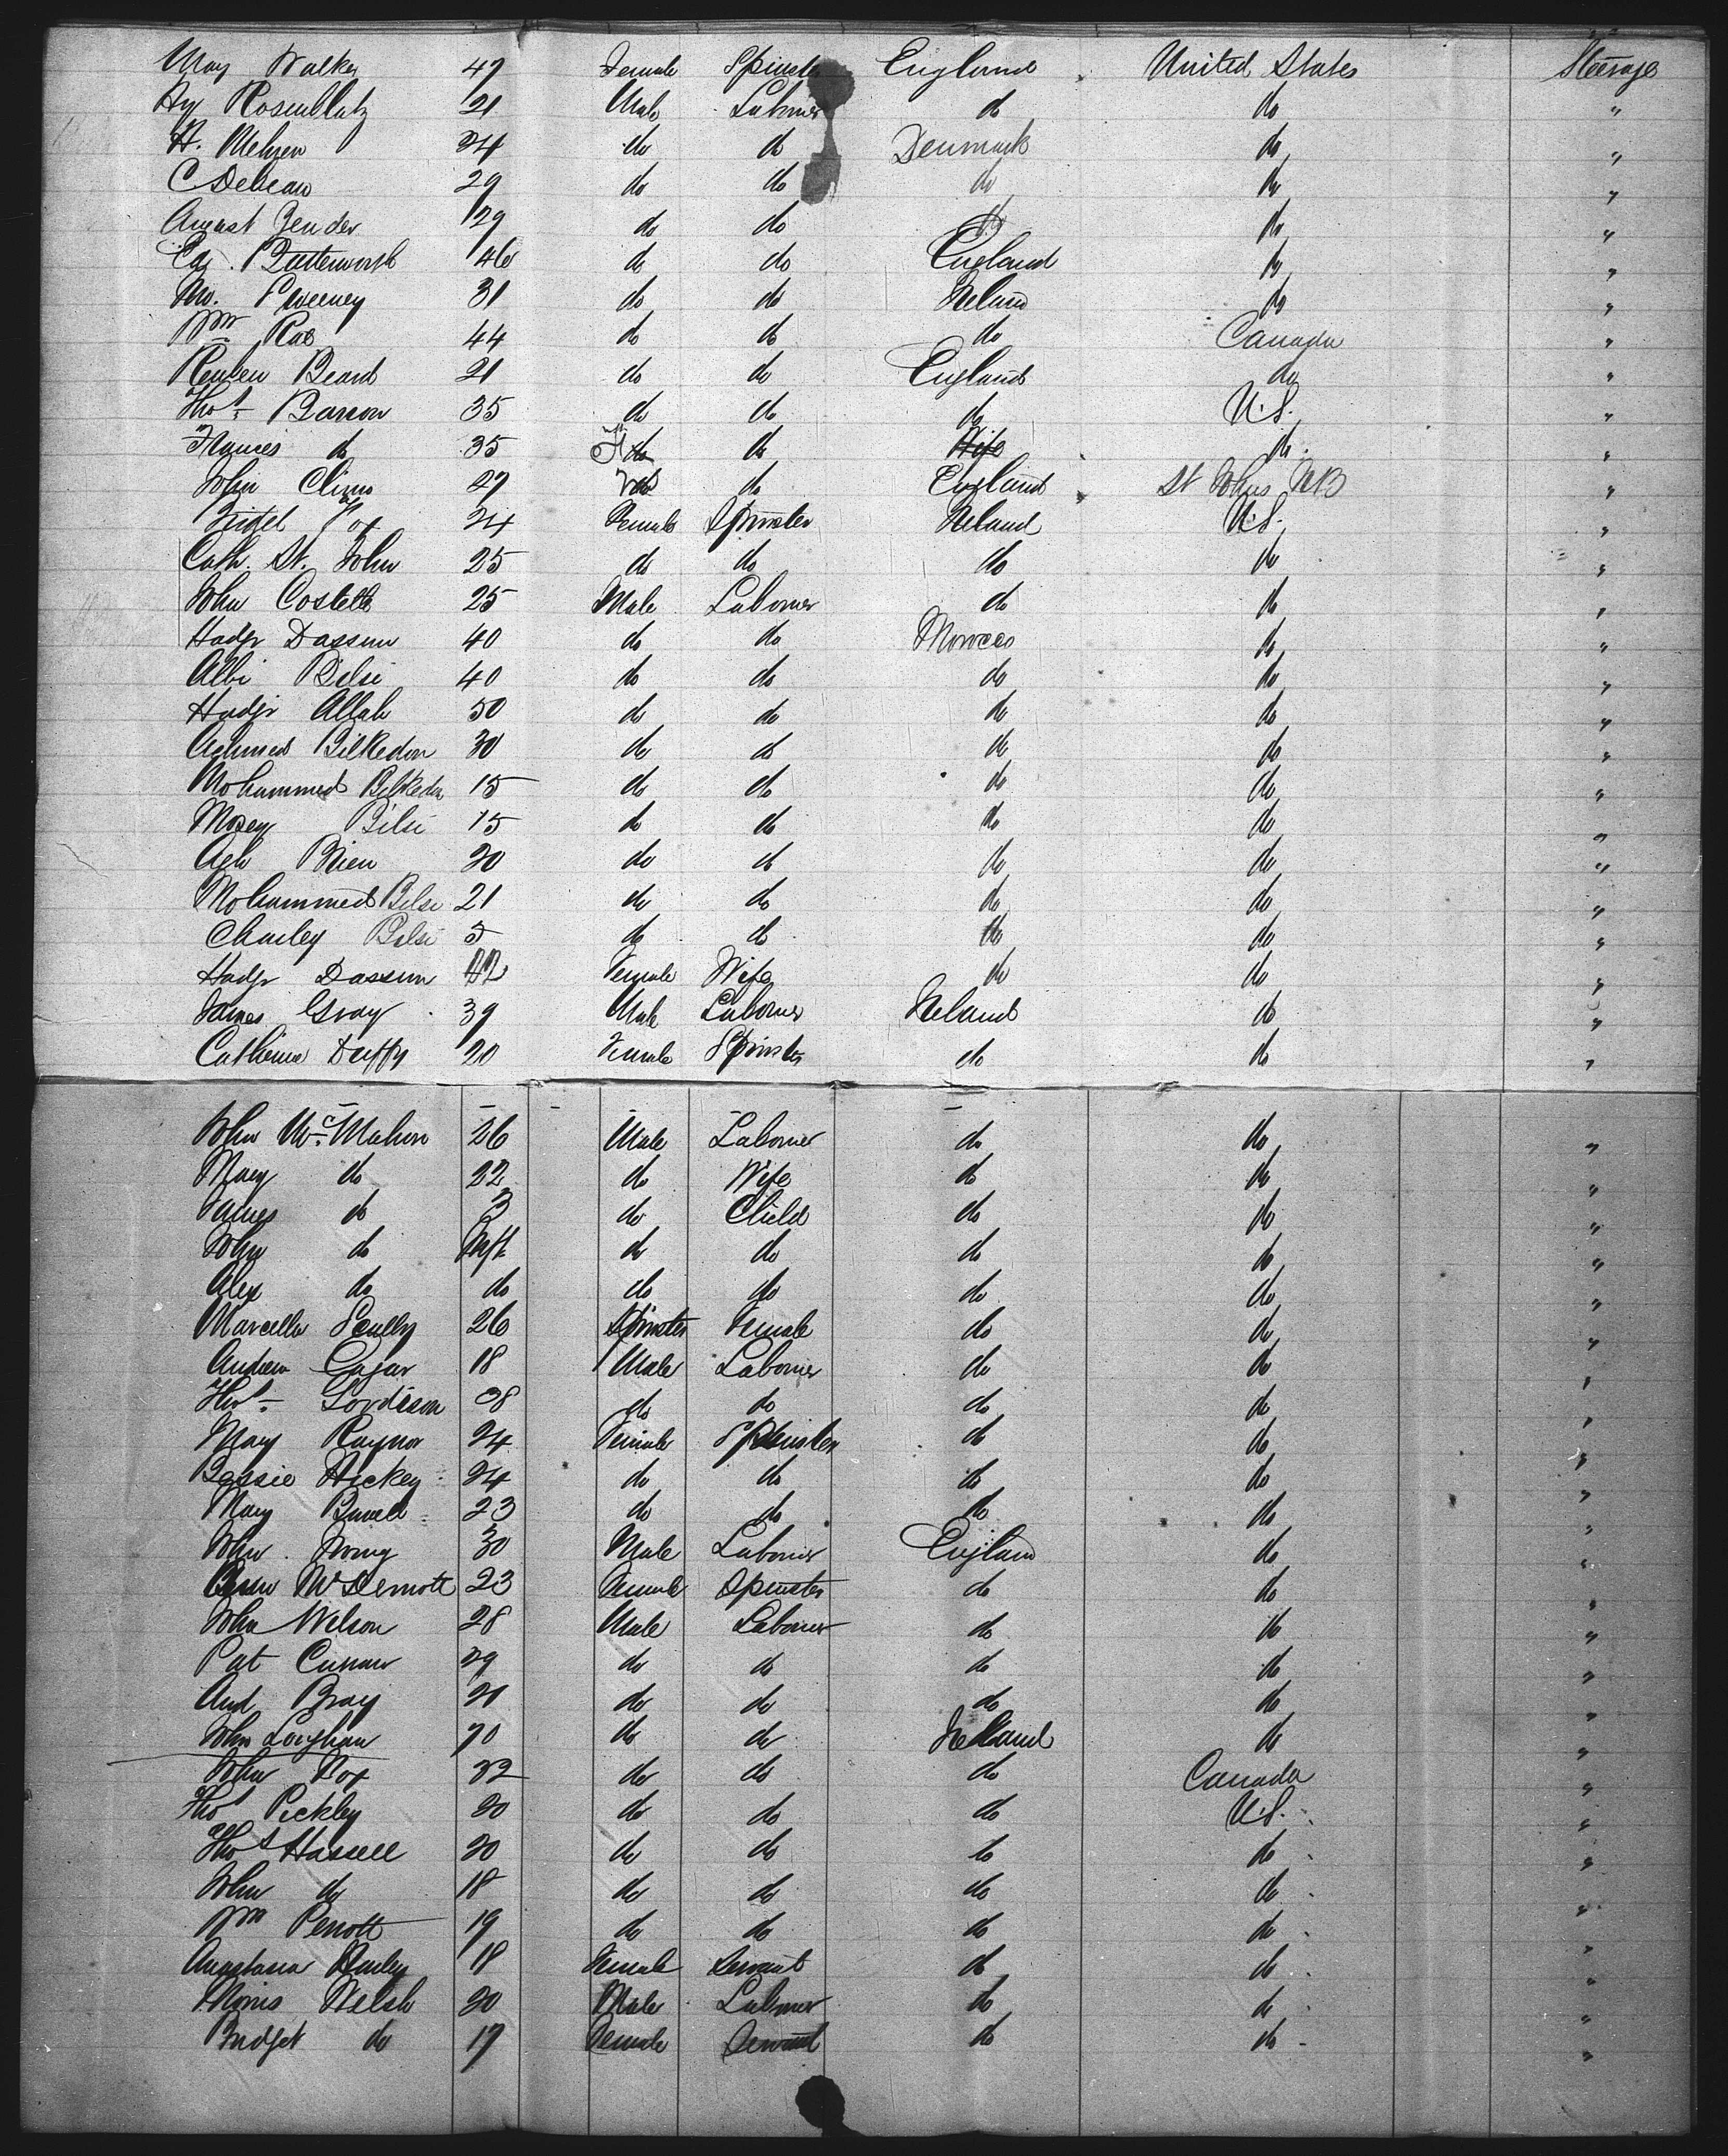 May Walker 47 Female Spinster England United States Steerage
Hy Rosenblatz 21 Male Laborer do do "
H. Melsen 24 do do Denmark do "
C Debeau 29 do do do do "
August Zender 29 do do do do "
Edw. Butterworth 46 do do England do "
M. Sweeney 31 do do Ireland do "
Wm Rae 44 do do do Canada "
Reuben Beard 21 do do England do "
Thos Barron 35 do do do U.S. "
Frances do 35 F do do do "
John 27 do do England St Johns NB "
Bridget Fox 24 Female Spinster Ireland U.S. "
Cath. St. John 25 do do do do "
John Costello 25 Male Laborer do do "
Hadji Dassum 40 do do Morocco do "
Albi Bilsi 40 do do do do "
Hadji Allah 50 do do do do "
Achmed Bilkedon 30 do do do do "
Mohammed Bilkedon 15 do do do do "
Mosey Bilsi 15 do do do do "
Agh Brien 30 do do do do "
Mohammed Bilsi 21 do do do do "
Charley Bilsi 5 do do do do "
Hadji Dassum Female Wife do do "
James Gray 39 Male Laborer Ireland do "
Catherine Duffy 20 Female Spinster do do "
John McMahon 26 Male Laborer do do "
Mary do 22 do Wife do do "
James do 3 do Child do do "
John do Inft do do do do "
Alex do do do do do do "
Marcella Scully 26 Spinster Female do do "
Andrew 18 Male Laborer do do "
Thos Lordison 28 do do do do "
Mary Raynor 24 Female Spinster do do "
Bessie Hickey 24 do do do do "
Mary 23 do do do do "
John 30 Male Laborer England do "
McDermott 23 Female Spinster do do "
John Wilson 28 Male Laborer do do "
Pat Curran 29 do do do do "
And Bray 21 do do do do "
John Loughan 70 do do Ireland do "
John Fox 32 do do do Canada "
Thos Pickley 20 do do do U.S. "
Thos Hassell 20 do do do do "
John do 18 do do do do "
Wm Perrott 19 do do do do "
Anastasia 18 Female Servant do do "
Morris Welsh 20 Male Laborer do do "
Bridget do 17 Female Servant do do "